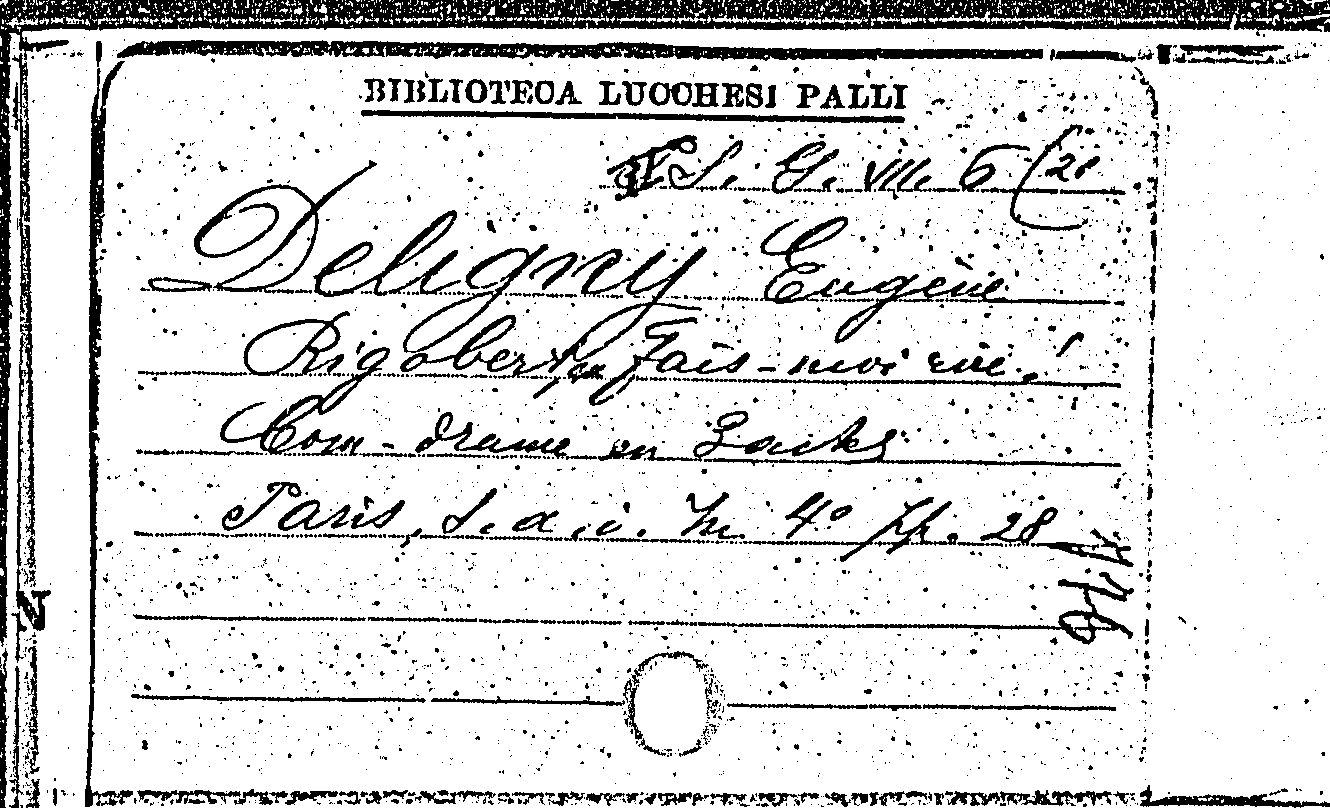 BIBLIOTECA LUCCHESI PALLI
S. G. VII. 6 (21
Deligny Eugène
Rigobert, fais-moi rire!
Com-drame en 3 actes
Paris, s. a. i. In 4° pp. 28